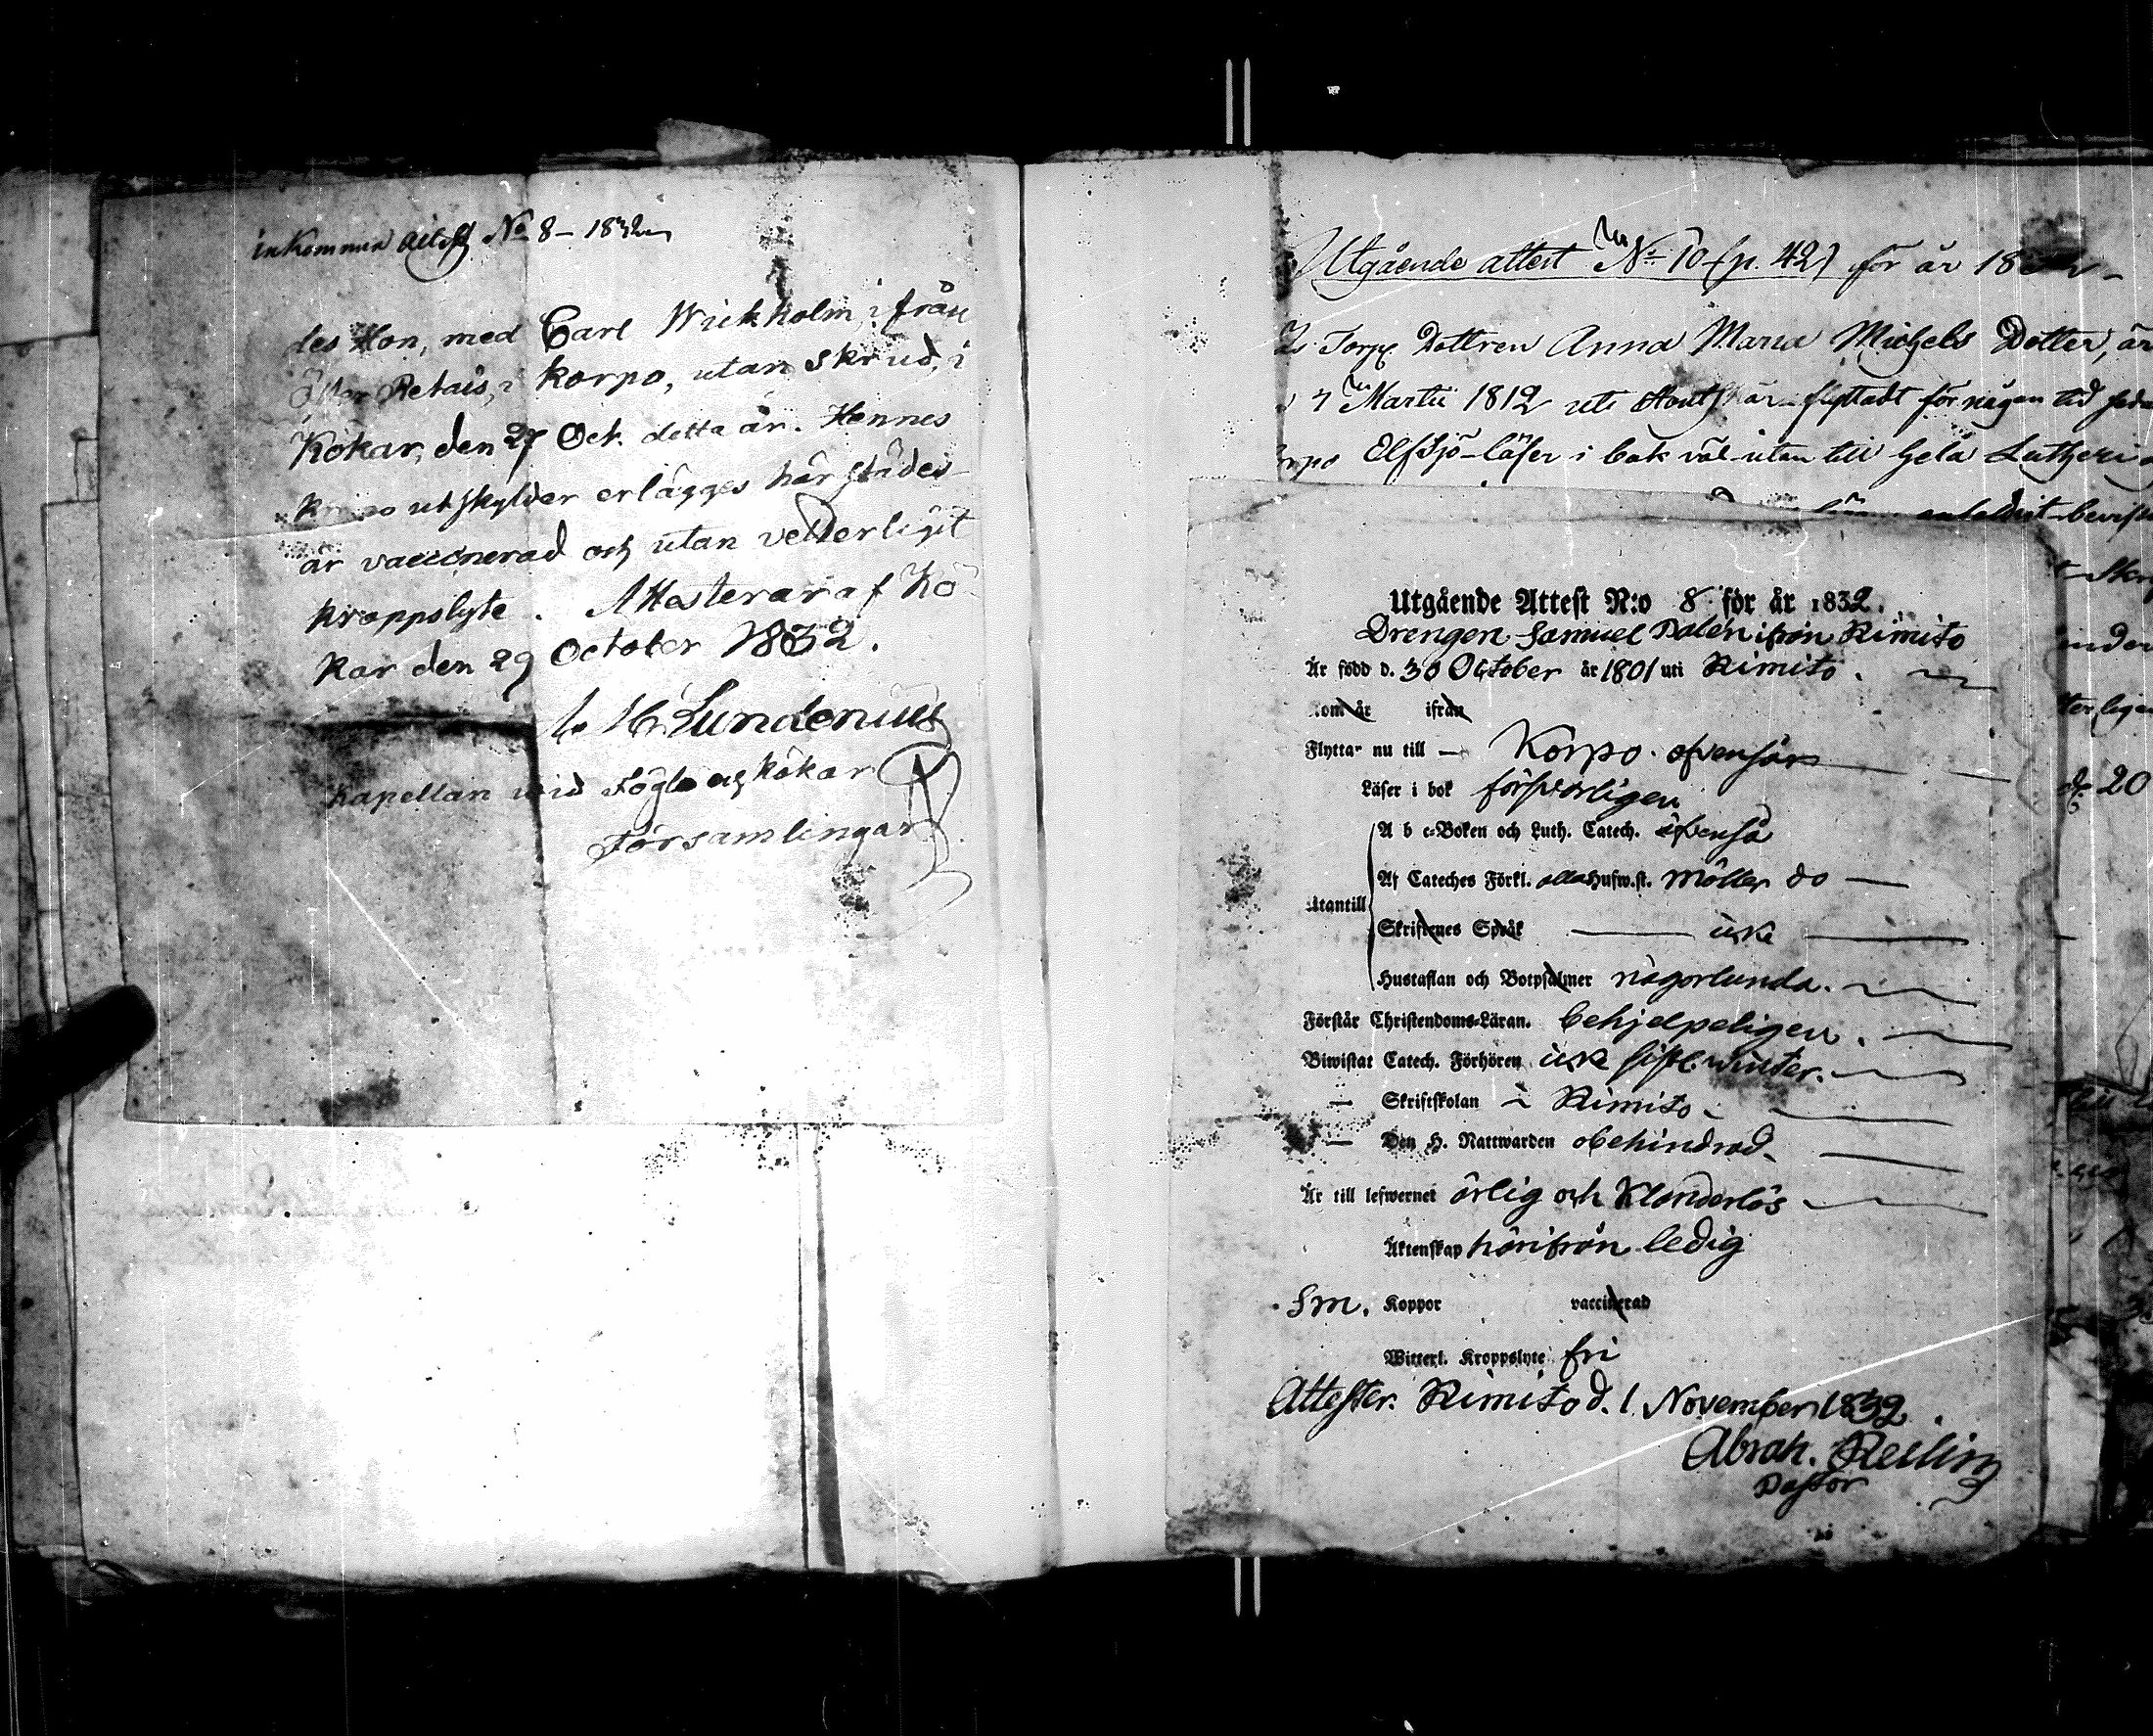 inkommen attest No 8 – 1832
des Hon, med Carl Wickholm, ifrån
Öfver Retais, i Korpo, utan skrud, i
Kökar, den 27 Oct. detta år. Hennes
utskylder erlägges här städes
är vaccinerad och utan vetterligit
kroppslyte. Attesterar af Kö
kar den 29 October 1832.
Lundenius
Kapellan wid Föglö och Kökar
Församlingar
Utgående attest No 10 (p. 42) för år 18
Torp. Dottren Anna Maria Michels Dotter, är
7 Martii 1812 uti Houtskär flyttadt för någon tid
Korpo Elfsjö – läser i bok väl – utan till hela Lutheri
Utgående Attest N:o 8 för år 1832.
Drengen Samuel Dalén ifrån Rimito
Är född d. 30 October år 1801 uti Rimito.
Kom år ifrån
Flyttar nu till – Korpo.
Läser i bok försvarligen
A b c-Boken och Luth. Catech. äfvenså
Af Cateches Förkl. alla Hufw.st. Möller do —
Utantill
Skriftenes Språk — icke —
Hustaflan och Botpsalmer någorlunda.
Förstår Christendoms-Läran. behjelpeligen.
Biwistat Catech. Förhören icke sistl. winter.
— Skriftskolan i Rimito
— Den H. Nattwarden obehindrad
Är till lefwernet ärlig och Klanderlös
Äktenskap härifrån ledig
Koppor vaccinerad
Witterl. Kroppslyte fri
Attester. Rimito d. 1 November 1832.
Abrah. Rellin
Pastor
20